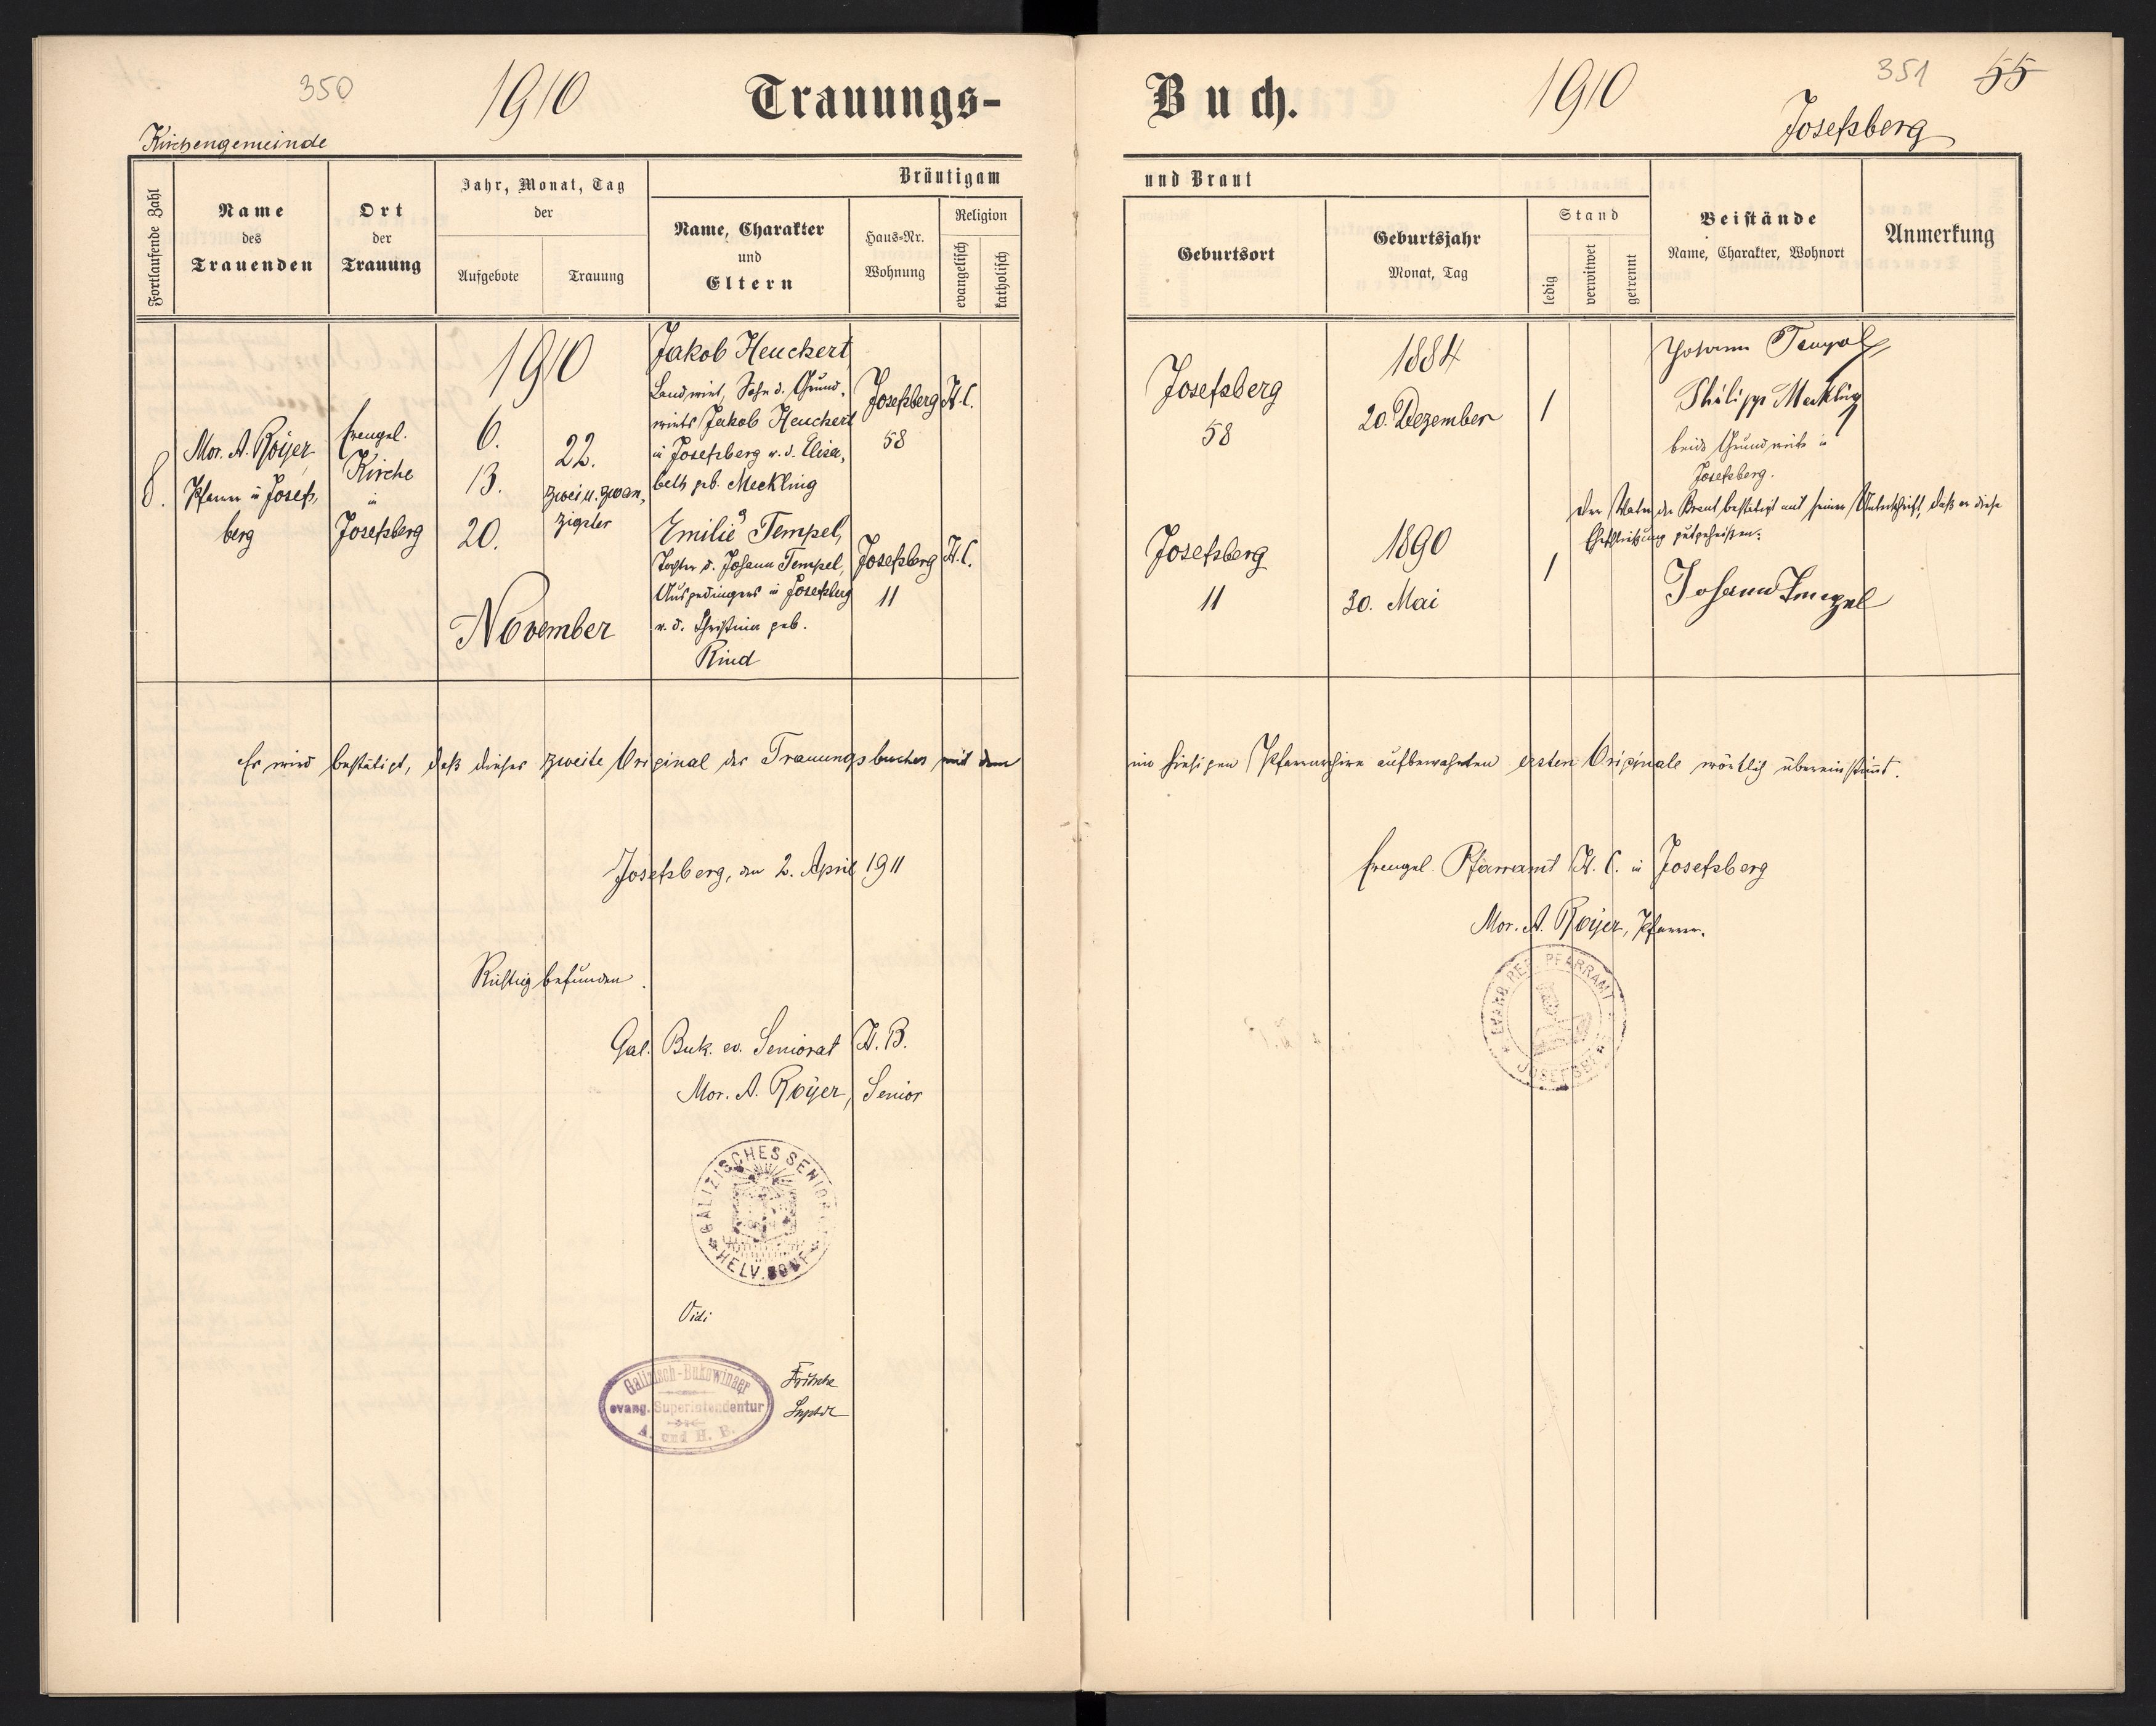 350
1910
Trauungs-
Buch.
1910
351 55
Kirchengemeinde
Josefsberg
Fortlaufende Zahl
Name
des
Trauenden
Ort
der
Trauung
Jahr, Monat, Tag
der
Aufgebote
Trauung
Bräutigam
Name, Charakter
und
Eltern
Haus-Nr.
Wohnung
Religion
evangelisch
katholisch
und Braut
Geburtsort
Geburtsjahr
Monat, Tag
Stand
ledig
verwitwet
getrennt
Beistände
Name, Charakter, Wohnort
Anmerkung
8.
Mor. A. Royer
Pfarrer in Josefs,
berg
Evengel.
Kirche
in
Josefsberg
1910
6.
13.
20.
22.
zwei u. zwan,
zigster
November
Jakob Heuchert,
Landwirt, Sohn d. Grund,
wirts Jakob Heuchert
in Josefsberg u. d. Elisa,
beth geb. Meckling
Josefsberg
58
H. C.
Josefsberg
58
1884
20. Dezember
/
Johann Tempel
Philipp Meckling
beide Grundwirte in
Josefsberg.
Emilie Tempel,
Tochter d. Johann Tempel,
Ausgedingers in Josefsberg
u. d. Christina geb.
Rind
Josefsberg
11
H. C.
Josefsberg
11
1890
30. Mai
/
Der Vater der Braut bestätigt mit seiner Unterschrift, daß er diese
Eheschließung gutgeheißen.
Johann Tempel
Es wird bestätigt, daß dieses zweite Original des Trauungsbuches mit dem
im hiesigen Pfarrarchive aufbewahrten ersten Originale wörtlich übereinstimmt.
Josefsberg, den 2. April 1911
Evengel. Pfarramt H. C. in Josefsberg
Mor. A. Royer, Pfarrer.
EVANG. REF. PFARRAMT
JOSEFSBERG
Richtig befunden.
Gal. Buk. ev. Seniorat H. B.
Mor. A. Royer, Senior
GALIZISCHES SENIORAT
HELV. CONF.
Vidi
Galizisch-Bukowinaer
evang. Superintendentur
A. und H. B.
Fritsche
Suptdt